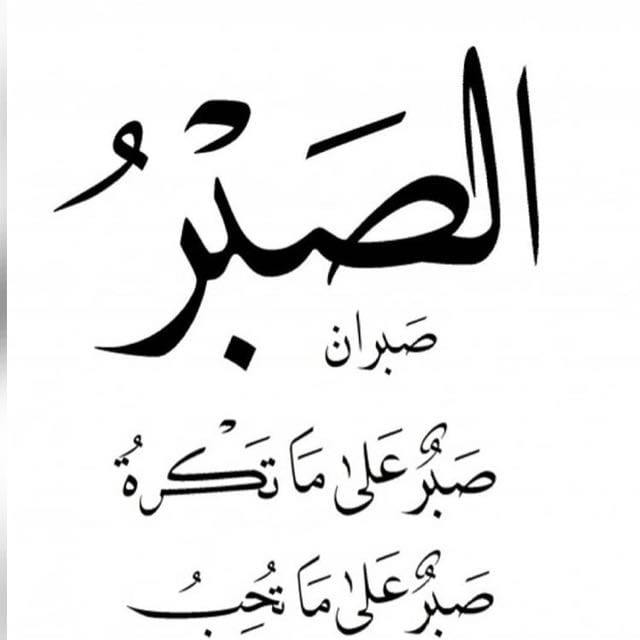 الصَبْرُ
صَبران
صَبرٌ عَلىٰ مَا تَكْرةُ
صَبرٌ عَلىٰ مَا تُحِبُ